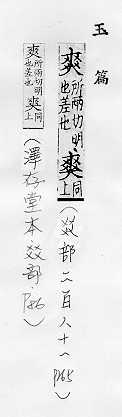 玉篇
爽 所兩切明也差也 爽 同上 (㸚部二百八十八 p265)
爽 所兩切明也差也 爽 同上 (澤存堂本 㸚部 P86)